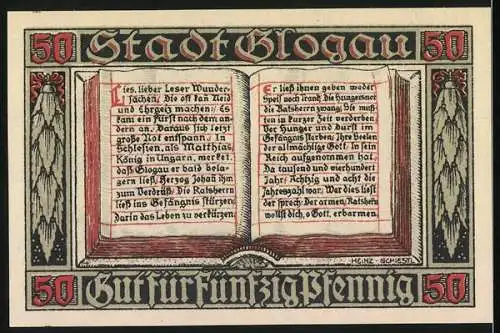 50 Stadt Glogau 50
Lies, lieber Leser Wunder-
sachen; Die oft kan Neid
und Ehrgeiz machen: Es
kam ein Fürst nach dem an-
dern an. Daraus sich letzt
große Not entspann. In
Schlesien, als Matthias
König in Ungarn, merket,
daß Glogau er bald bela-
gern ließ, Herzog Johan ihm
zum Verdrüß: Die Ratsherrn
ließ ins Gefängnis stürzen,
Darin das Leben zu verkürzen.
Er ließ ihnen geben weder
Speiß noch Trank, Die Hungersnot
die Ratsherrn zwang; Sie muß-
ten in kurzer Zeit verderben
Vor Hunger und Durst im
Gefängnis sterben; Ihre Seelen
der allmächtige Gott. In sein
Reich aufgenommen hat.
Da tausend und vierhundert
Jahr; Achtzig und acht die
Jahreszahl war. Wer dies liest
der sprech: Der armen, Ratsherrn
wollst dich, o Gott, erbarmen.
HEINZ SCHIESTL
50 Gut für fünfzig Pfennig 50